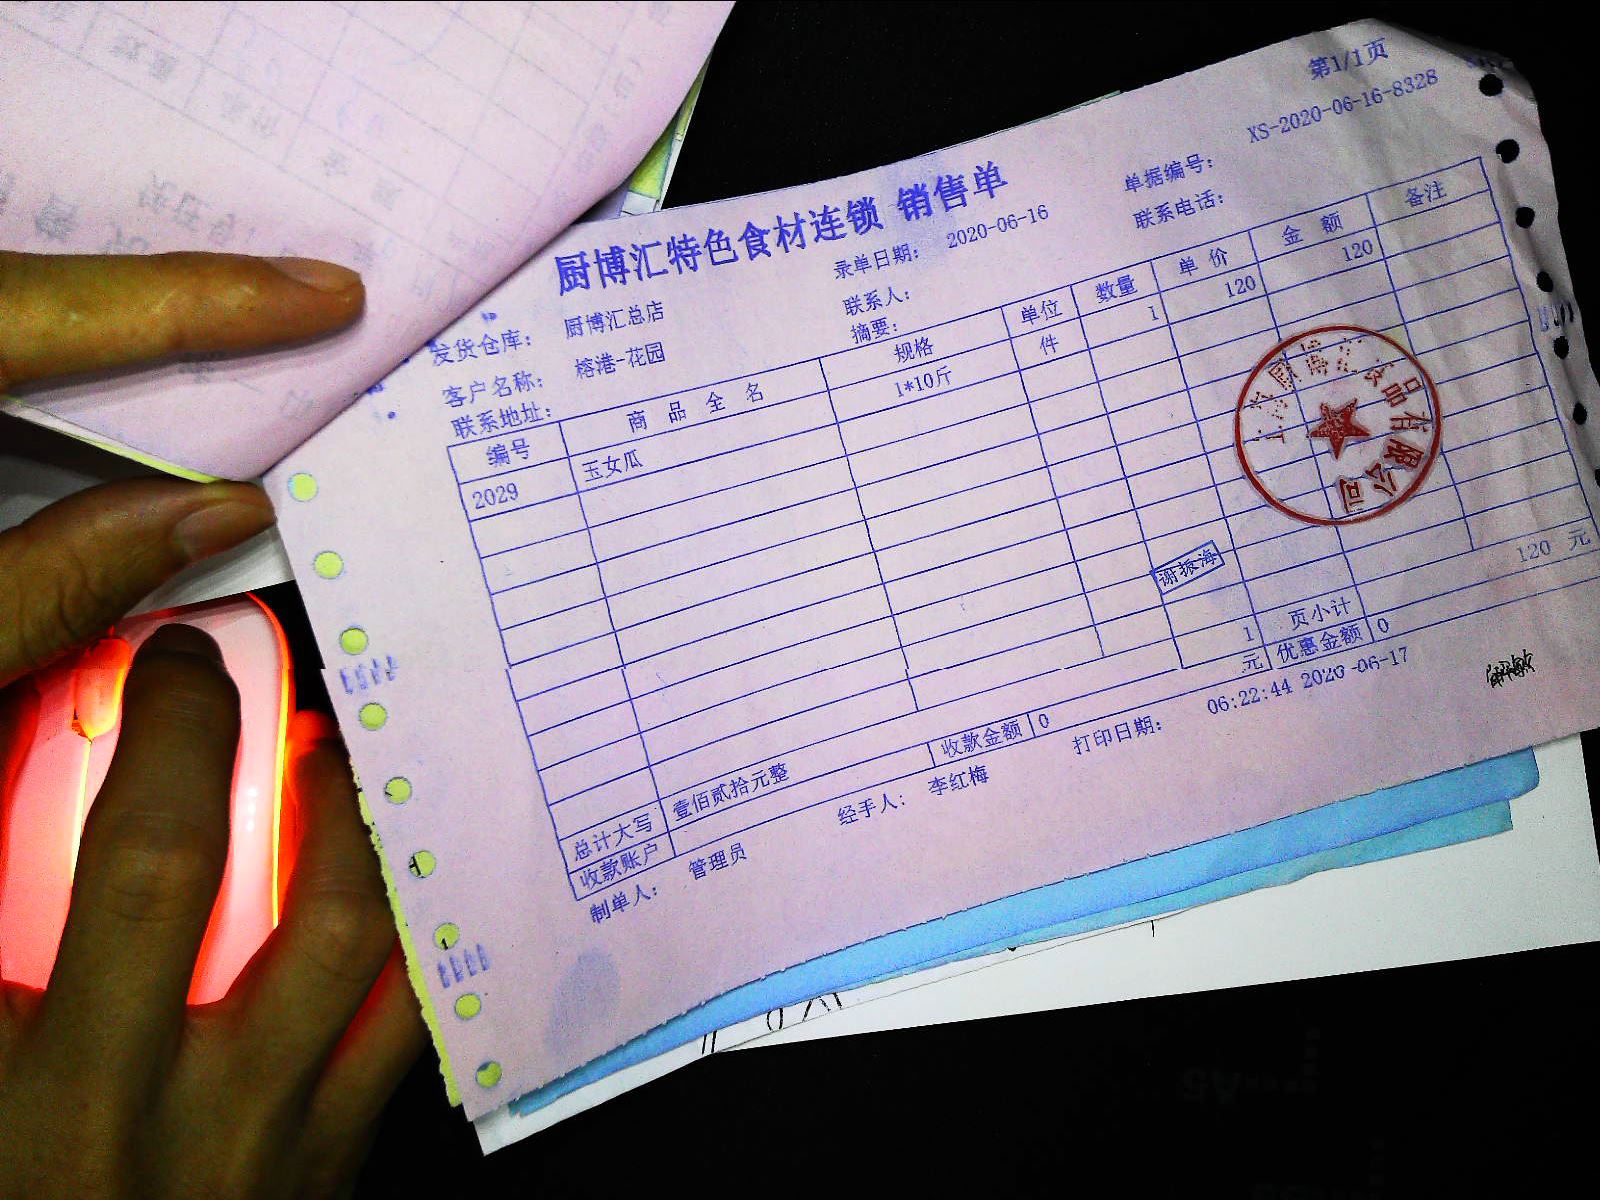 第1/1页
厨博汇特色食材连锁 销售单
单据编号: XS-2020-06-16-8328
发货仓库: 厨博汇总店 录单日期: 2020-06-16 联系电话:
客户名称: 榕港-花园 联系人:
联系地址: 摘要:
编号 商品全名 规格 单位 数量 单价 金额 备注
2029 玉女瓜 1*10斤 件 1 120 120
食品有限公司
谢振海
1 页小计 120 元
总计大写 壹佰贰拾元整 元 优惠金额 0
收款账户 收款金额 0
制单人: 管理员 经手人: 李红梅 打印日期: 06:22:44 2020-06-17